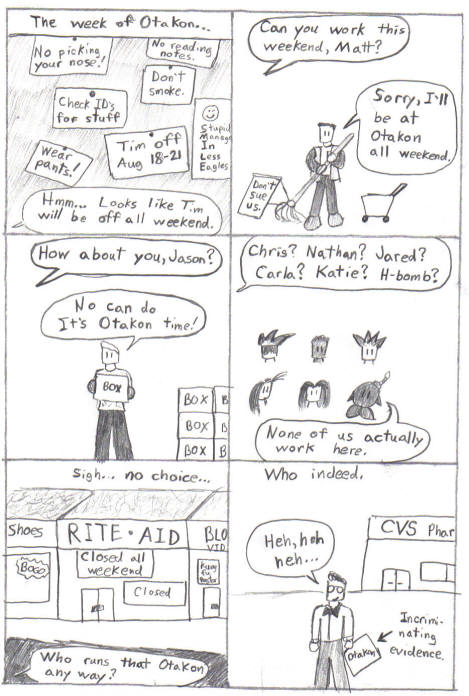 The week of Otakon...
No picking
your nose!
No reading
notes.
Don't
smoke.
Check ID's
for stuff
Tim off
Aug 18-21
Wear
pants!
Stupid
Manag
In
Less
Eagles
Hmm... Looks like Tim
will be off all weekend.
Can you work this
weekend, Matt?
Sorry, I'll
be at
Otakon
all weekend.
Don't
sue
us.
How about you, Jason?
No can do
It's Otakon time!
BOX
BOX B
BOX B
BOX B
Chris? Nathan? Jared?
Carla? Katie? H-bomb?
None of us actually
work here.
Sigh... no choice...
Shoes
RITE•AID
BLO
VID
BOGO
Closed all
weekend
Closed
Who runs that Otakon
any way?
Who indeed.
CVS Phar
Heh, heh
heh...
Otakon
Incrimi-
nating
evidence.